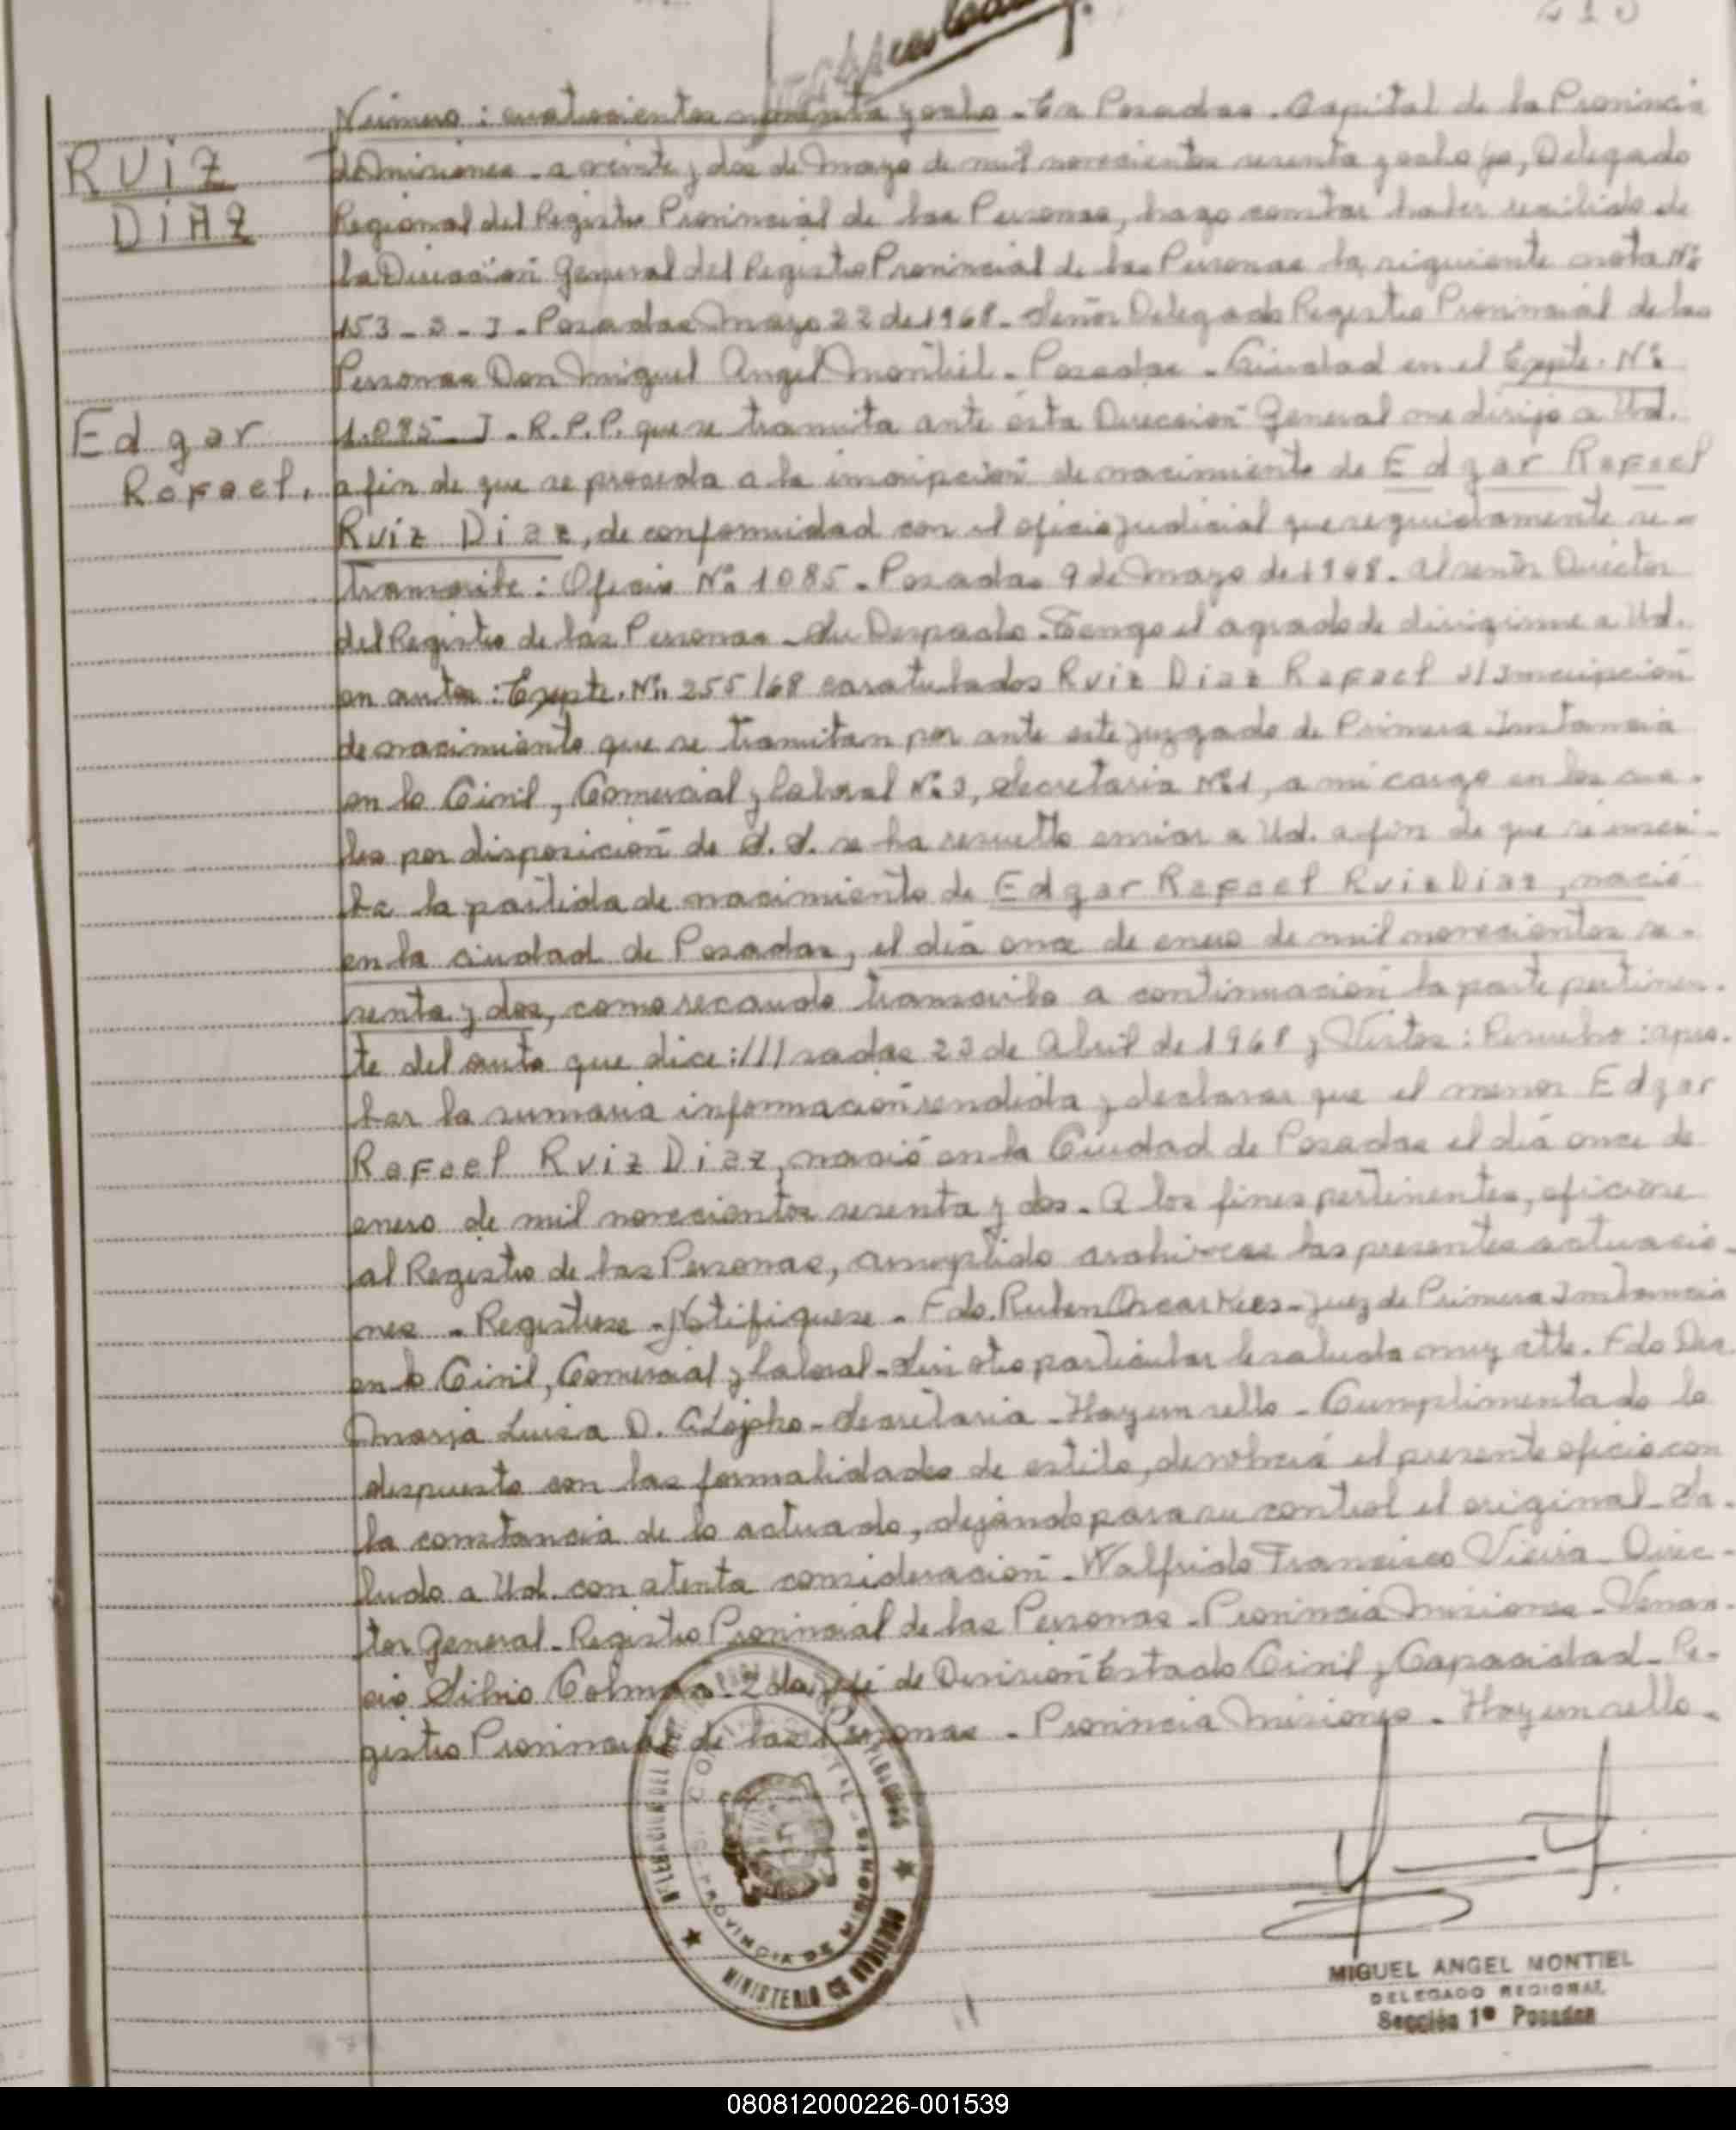 213
Número: cuatrocientos noventa y ocho - En Posadas. Capital de la Provincia
RUIZ
de Misiones - a veinte y dos de Mayo de mil novecientos sesenta y ocho yo, Delegado
DIAZ
Regional del Registro Provincial de las Personas, hago constar haber recibido de
la Dirección General del Registro Provincial de las Personas la siguiente nota Nº
153 - - J - Posadas Mayo 22 de 1968 - Señor Delegado Registro Provincial de las
Personas Don Miguel Angel Montiel - Posadas - Ciudad en el Expte. Nº
Edgar
1.085 - J - R.P.P. que se tramita ante ésta Dirección General me dirijo a Ud.
Rafael.
a fin de que se proceda a la inscripción de nacimiento de Edgar Rafael
Ruiz Diaz, de conformidad con el oficio judicial que seguidamente se -
transcribe: Oficio Nº 1085 - Posadas 9 de Mayo de 1968. Al señor Director
del Registro de las Personas - Su Despacho. Tengo el agrado de dirigirme a Ud.
en autos: Expte. Nº 255/68 caratulados Ruiz Diaz Rafael s/Inscripción
de nacimiento que se tramitan por ante este juzgado de Primera Instancia
en lo Civil, Comercial y laboral Nº 3, Secretaria Nº 1, a mi cargo en los cua-
les por disposición de S. S. se ha resuelto enviar a Ud. a fin de que se inscri-
ba la partida de nacimiento de Edgar Rafael Ruiz Diaz, nació
en la ciudad de Posadas, el día once de enero de mil novecientos se-
senta y dos, como recaudo transcribo a continuación la parte pertinen-
te del auto que dice: ///sadas 23 de Abril de 1968 y Vistos: Resuelvo: apro-
bar la sumaria información rendida y declarar que el menor Edgar
Rafael Ruiz Diaz, nació en la Ciudad de Posadas el día once de
enero de mil novecientos sesenta y dos. A los fines pertinentes, oficiese
al Registro de las Personas, cumplido archivese las presentes actuacio-
nes - Registrese - Notifiquese - Fdo. Ruben Oscar - Juez de Primera Instancia
en lo Civil, Comercial y laboral - Sin otro particular le saluda muy atte. Fdo Dra.
Maria Luisa D. - Secretaria - Hay un sello - Cumplimentado lo
dispuesto con las formalidades de estilo, devolverá el presente oficio con
la constancia de lo actuado, dejando para su control el original - Sa-
ludo a Ud. con atenta consideración - Walfrido Francisco Vieira Direc-
tor General - Registro Provincial de las Personas - Provincia Misiones - Venan-
cio Silvio Colman - 2do Jefe de División Estado Civil y Capacidad - Re-
gistro Provincial de las Personas - Provincia Misiones - Hay un sello -
PROVINCIA DE MISIONES
MINISTERIO DE GOBIERNO
MIGUEL ANGEL MONTIEL
DELEGADO REGIONAL
Sección 1ª Posadas
080812000226-001539